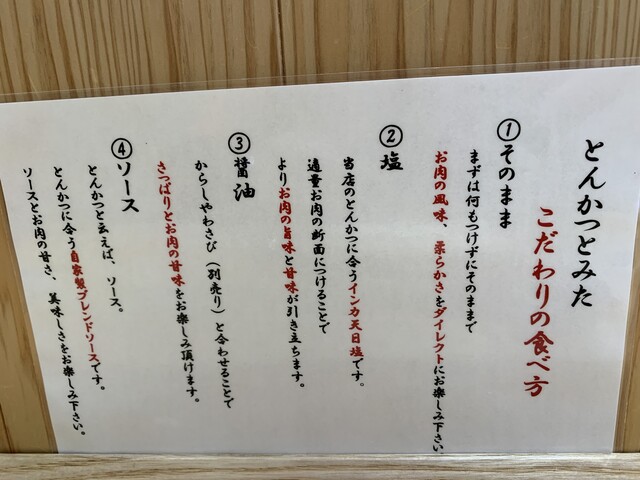 とんかつとみた
こだわりの食べ方
①そのまま
まずは何もつけずにそのままで
お肉の風味、柔らかさをダイレクトにお楽しみ下さい。
②塩
当店のとんかつに合うインカ天日塩です。
適量お肉の断面につけることで
よりお肉の旨味と甘味が引き立ちます。
③醤油
からしやわさび（別売り）と合わせることで
さっぱりとお肉の甘味をお楽しみ頂けます。
④ソース
とんかつと云えば、ソース。
とんかつに合う自家製ブレンドソースです。
ソースとお肉の甘さ、美味しさをお楽しみ下さい。